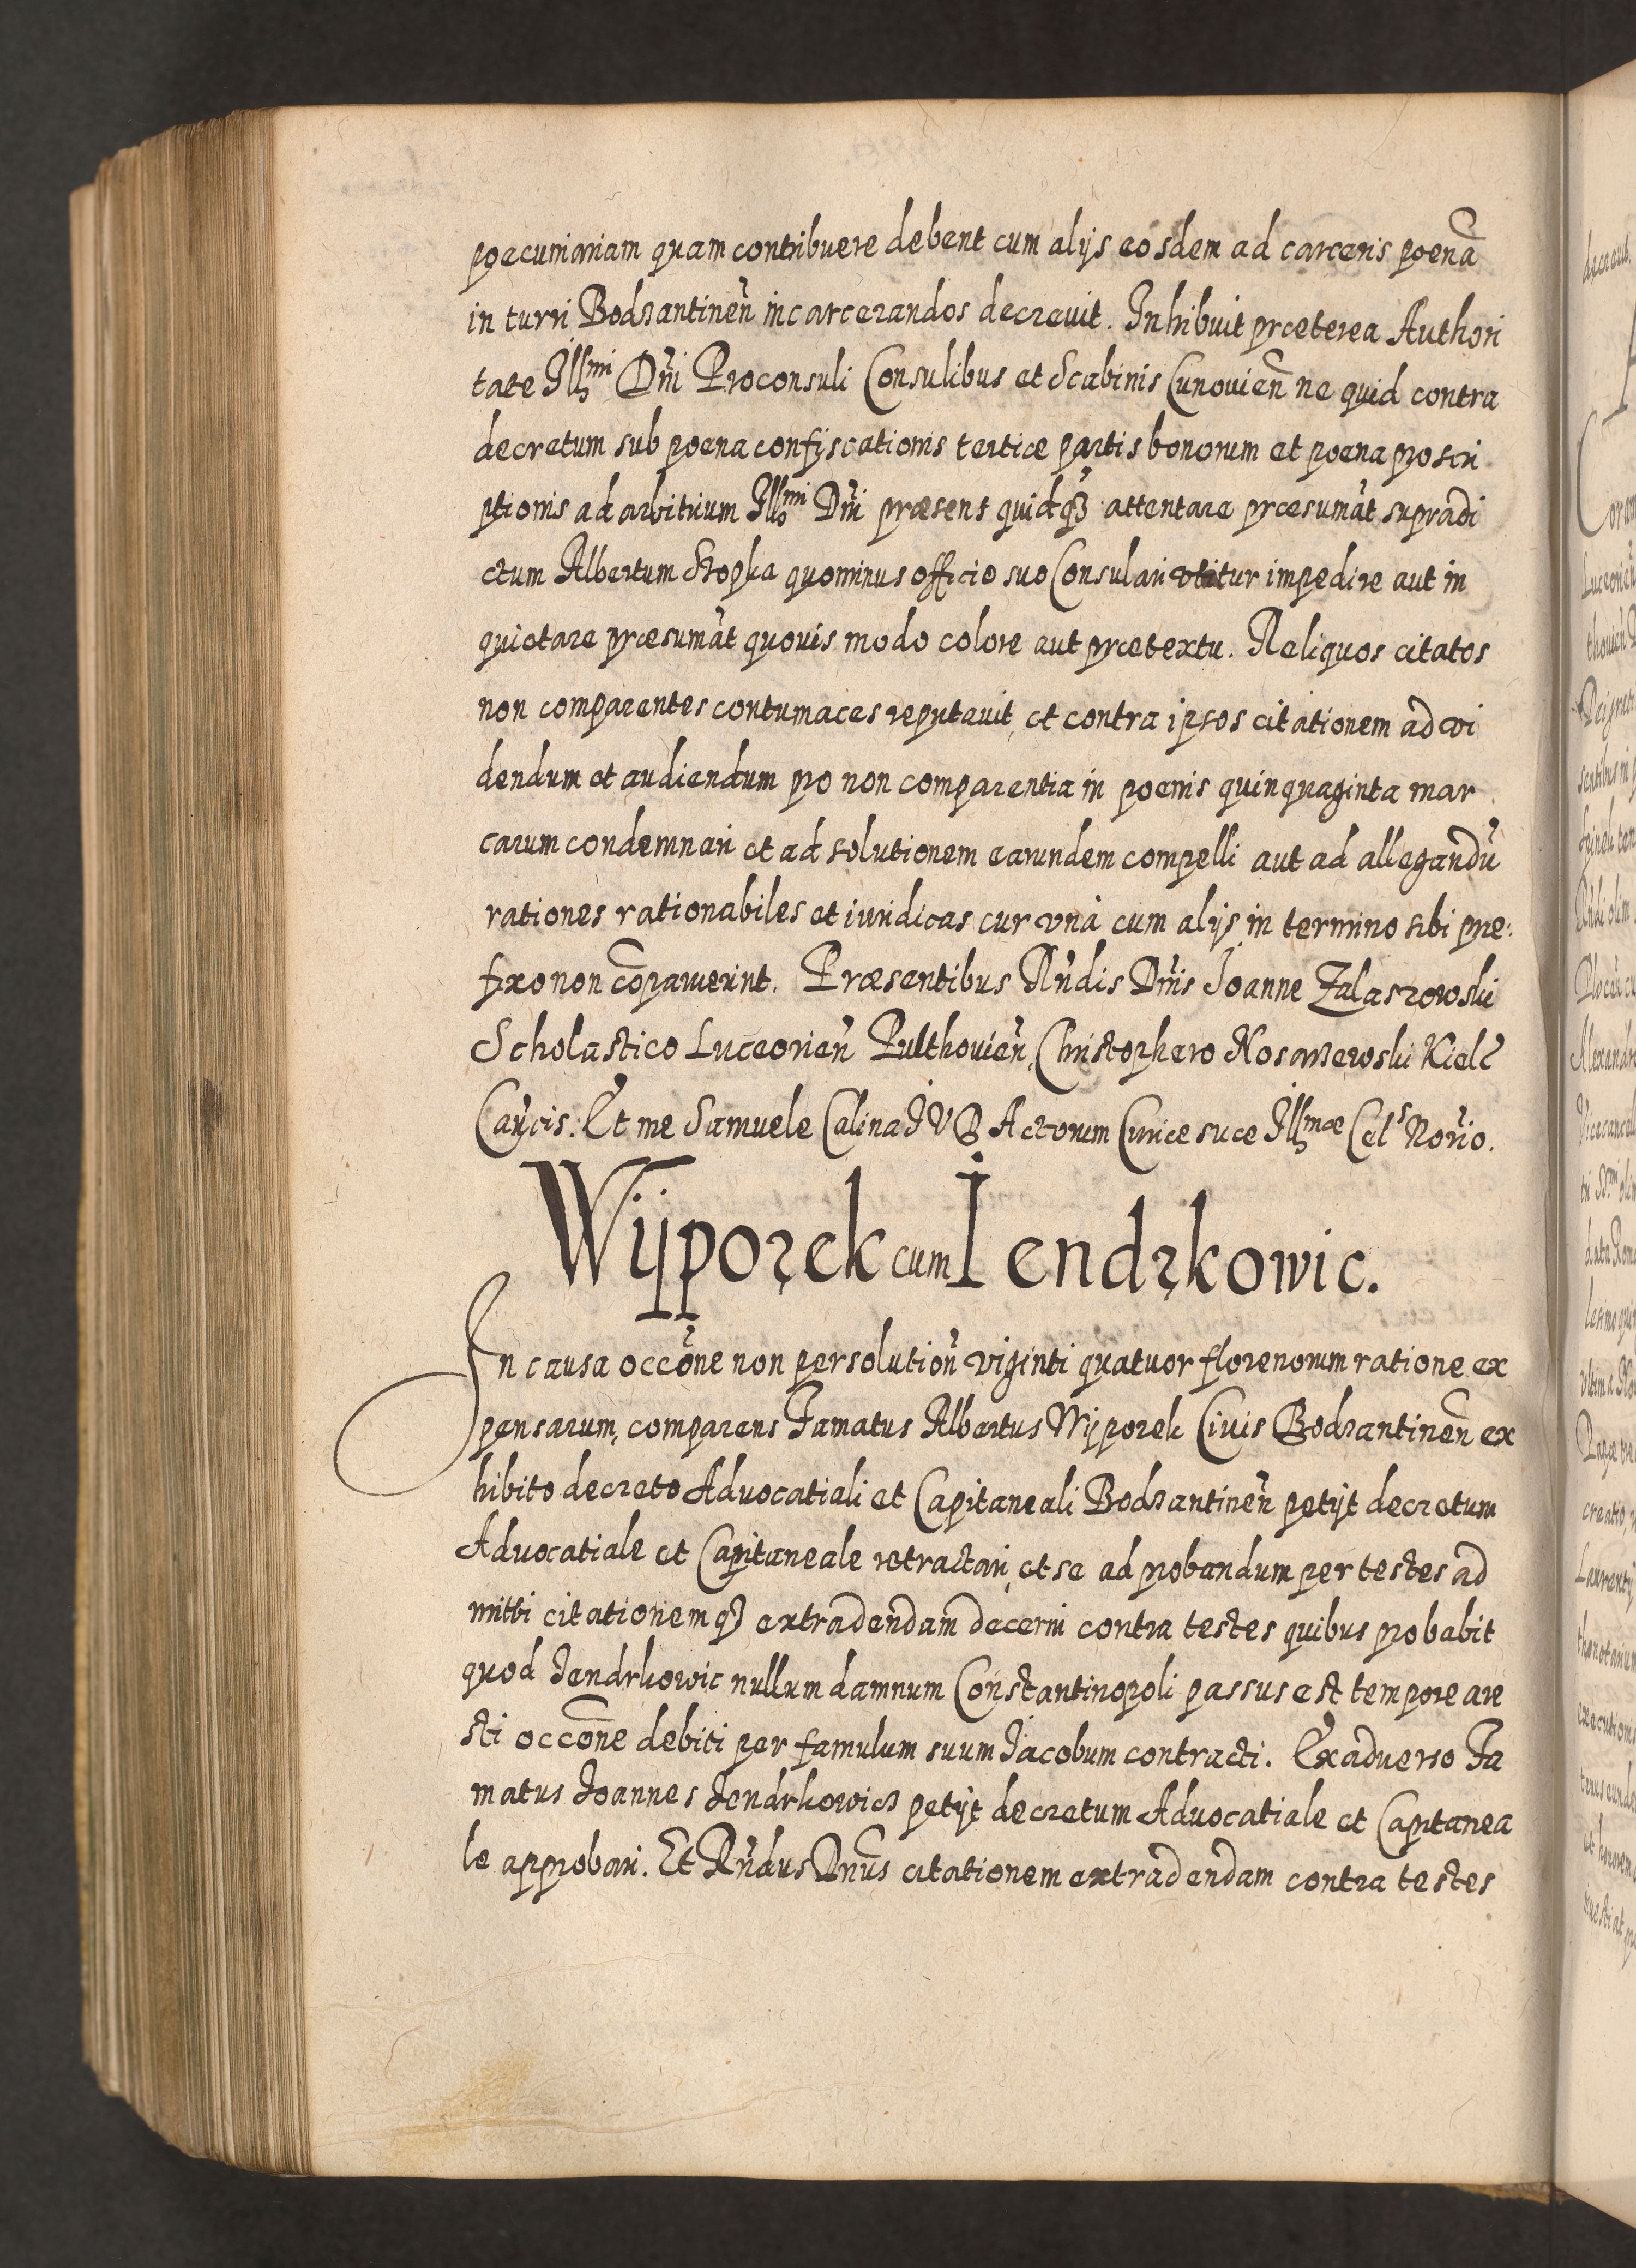 poecuniariam quam contribuere debent cum alijs eosdem ad carceris poenã
in turri Bodzantineñ incarcerandos decreuit. Inhibuit præterea Authori
tate Illmi Dñi Proconsuli Consulibus et Scabinis Cunouieñ ne quid contra
decretum sub poena confiscationis tertiæ partis bonorum et poena proscri
ptionis ad arbitrium Illmi Dñi præsens quidqȝ attentare præsumãt supradi
ctum Albertum Stopka quominus officio suo Consulari utitur impedire aut in
quietare præsumãt quouis modo colore aut prætextu. Reliquos citatos
non comparentes contumaces reputauit, et contra ipsos citationem ad vi
dendum et audiendum pro non comparentia in poenis quinquaginta mar
carum condemnari et ad solutionem earundem compelli aut ad allegandũ
rationes rationabiles et iuridicas cur vnà cum alijs in termino sibi pre:
fixo non cõparuerint. Præsentibus Rñdis Dñis Joanne Zalaszowski
Scholastico Luceorieñ Pulthouieñ, Christophero Kielc
Cañcis. Et me Samuele Calina I V D Actorum Curiæ suæ Illmæ Cels Norio.
Wijporzek cum Jendrzkowic.
In causa occõne non persolutioñ viginti quatuor florenorum ratione ex
pensarum, comparens Famatus Albertus Wijporek Ciuis Bodzantineñ ex
hibito decreto Aduocatiali et Capitaneali Bodzantineñ petijt decretum
Aduocatiale et Capitaneale retractari, et se ad probandum per testes ad
mitti citationemqȝ extradendam decerni contra testes quibus probabit
quod Jendrkowic nullum damnum Constantinopoli passus est tempore are
sti occõne debiti per famulum suum Jacobum contracti. Ex aduerso Fa
matus Joannes Jendrkowicz petijt decretum Aduocatiale et Capitanea
le approbari. Et Rñdus Dnũs citationem extradendam contra testes